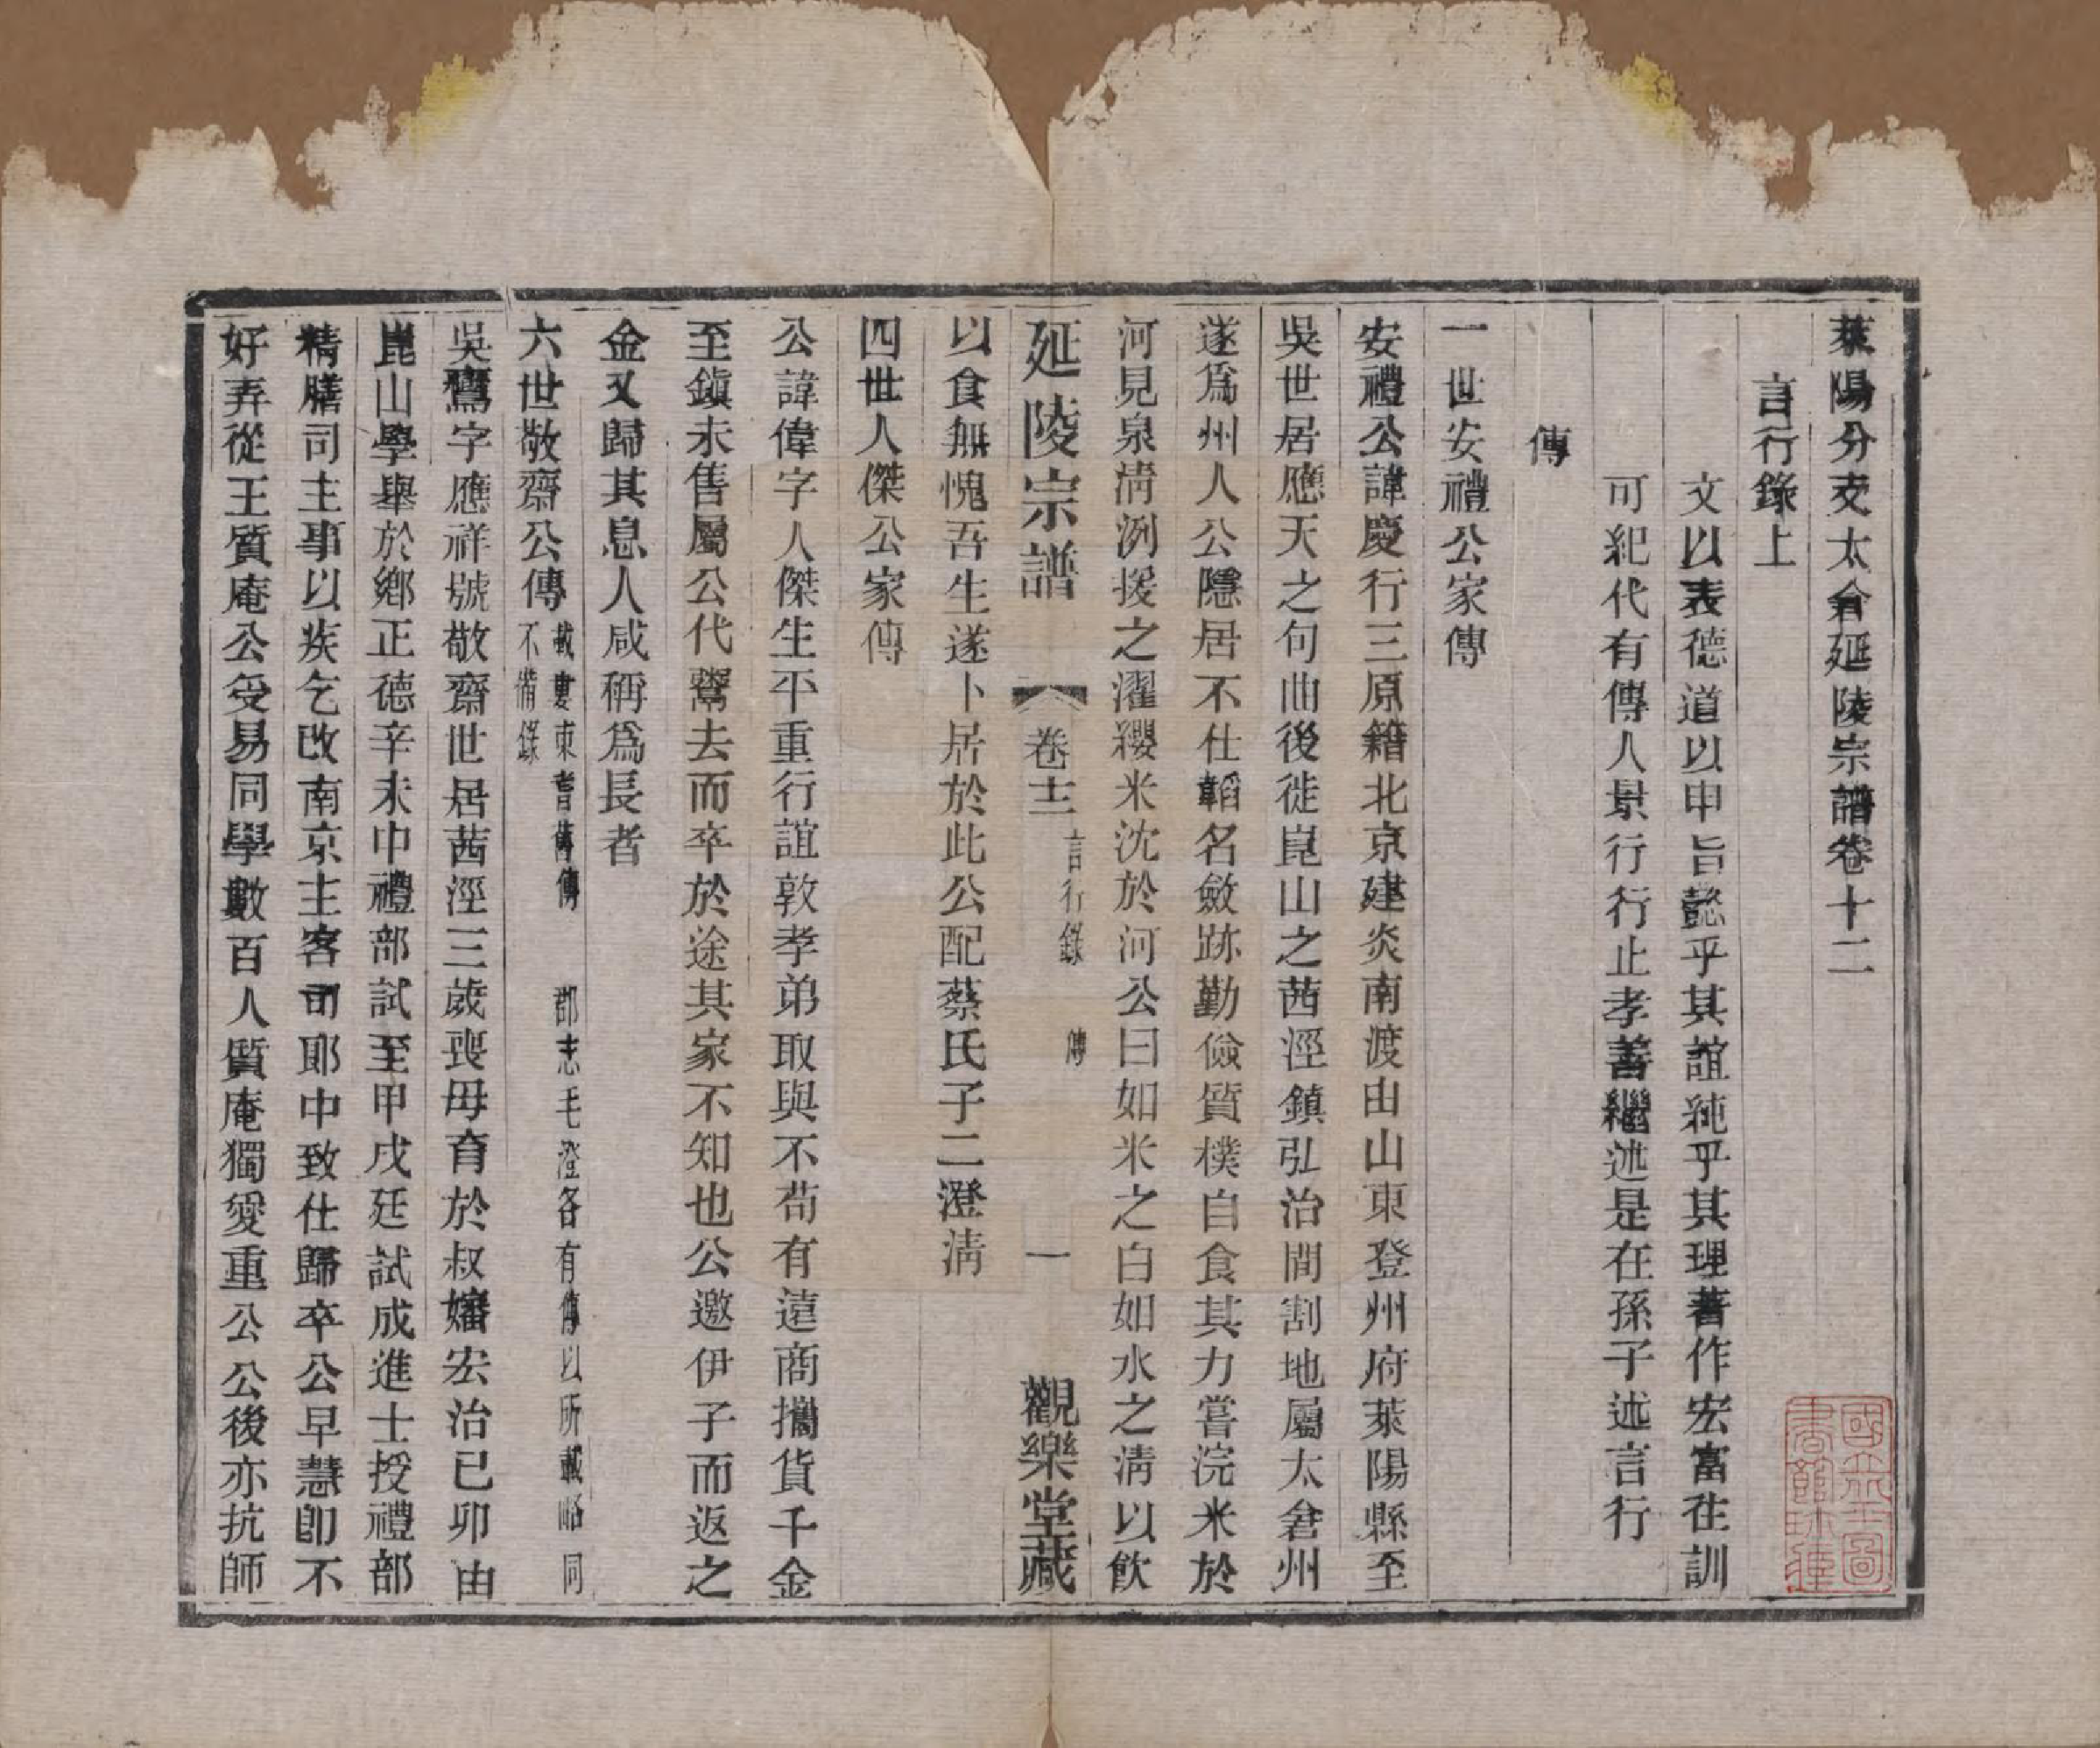 萊陽分支太倉延陵宗譜卷十二
言行錄上
文以表德道以申旨懿乎其誼純乎其理著作宏富在訓
可紀代有傳人景行行止孝善繼述是在孫子述言行
傳
一世安禮公家傳
安禮公諱慶行三原籍北京建炎南渡由山東登州府萊陽縣至
吳世居應天之句曲後徙崑山之茜涇鎮弘治間割地屬太倉州
遂爲州人公隱居不仕韜名斂跡勤儉質樸自食其力嘗浣米於
河見泉淸洌援之濯纓米沈於河公曰如米之白如水之淸以飮
延陵宗譜
卷十二
言行錄
傳
一
觀樂堂藏
以食無愧吾生遂卜居於此公配蔡氏子二澄淸
四世人傑公家傳
公諱偉字人傑生平重行誼敦孝弟取與不苟有遠商攜貨千金
至鎭未售屬公代鬻去而卒於途其家不知也公邀伊子而返之
金又歸其息人咸稱爲長者
六世敬齋公傳
載婁東耆舊傳 郡志毛澄各有傳以所載略同
不備錄
吳鸞字應祥號敬齋世居茜涇三歲喪母育於叔嬸宏治己卯由
崑山學舉於鄉正德辛未中禮部試至甲戌廷試成進士授禮部
精膳司主事以疾乞改南京主客司郎中致仕歸卒公早慧卽不
好弄從王質庵公受易同學數百人質庵獨愛重公公後亦抗師